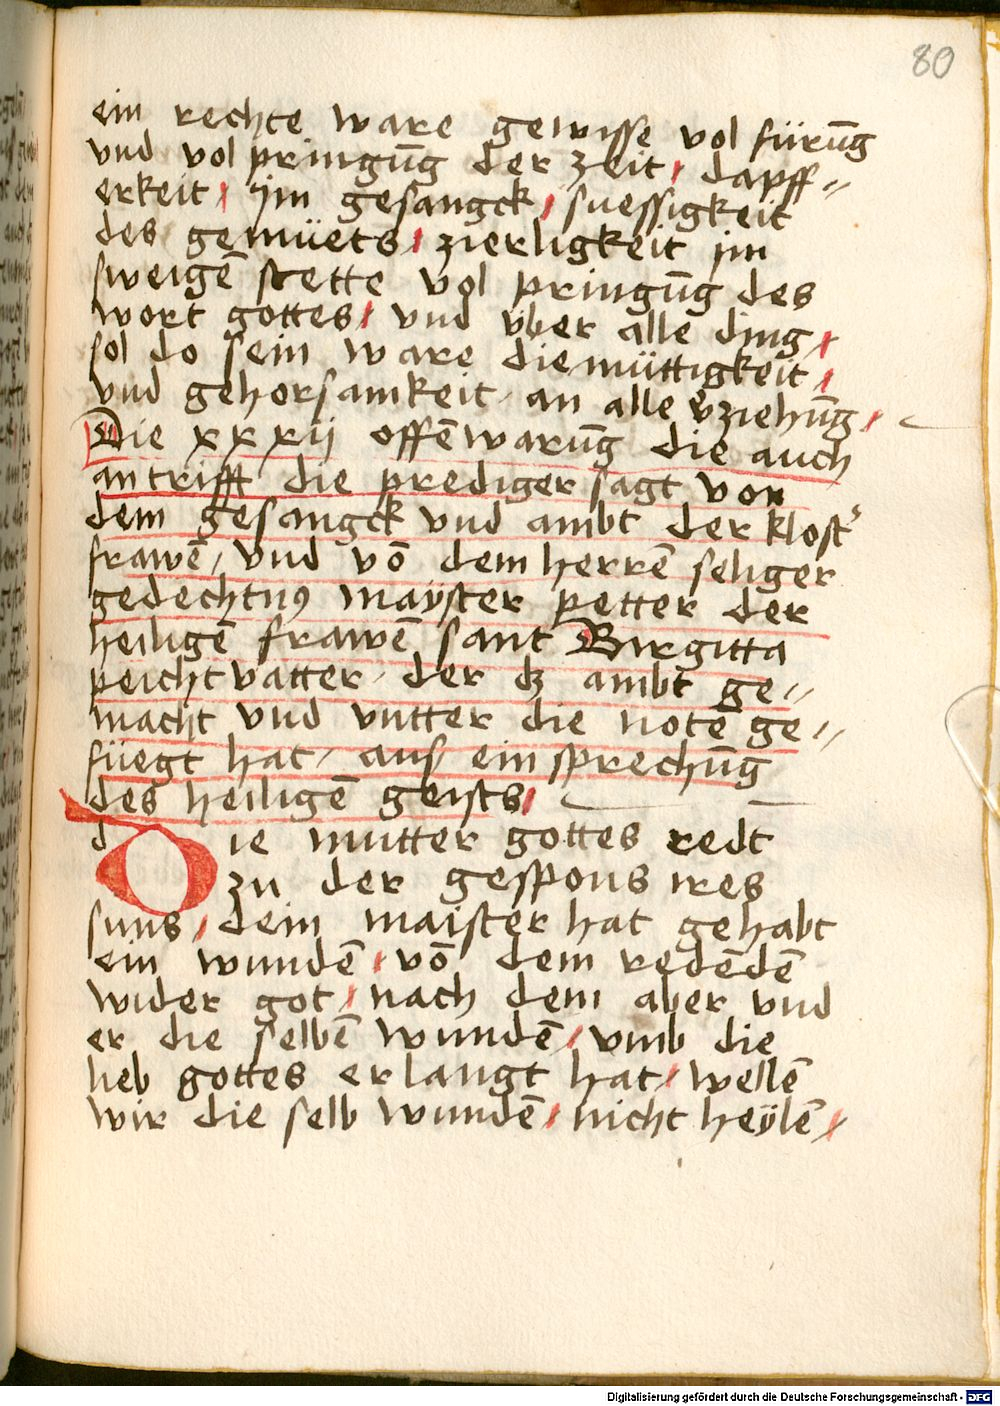 80
ein rechte ware gewisse vol fürūg
vnd vol pringūg der zeit / dapff=
erkeit / jm gesangck / suessigkeit
des gemüets / zierligkeit jm
sweigē stette vol pringūg des
wort gottes / vnd v̈ber alle ding /
sol do sein ware diemüttigkeit /
vnd gehorsamkeit / an alle v̾ziehūg /
Die xxxij offēwarūg die auch
antrifft die prediger sagt von
dem gesangck vnd ambt der klost̾
frawē / vnd vō dem herrē seliger
gedechtnꝰ maÿster petter der
heiligē frawē sant Birgitta
peicht vatter / der dz ambt ge=
macht vnd vntter die notē ge=
füegt hat / aus einsprechūg
des heiligē geists /
Die mutter gottes redt
zu der gespons ires
suns / dein maister hat gehabt
ein wundē / vō dem redēdē
wider got / nach dem aber vnd
er die selbē wundē / vmb die
lieb gottes erlangt hat / wellē
wir die selb wundē / nicht heÿlē /
Digitalisierung gefördert durch die Deutsche Forschungsgemeinschaft - DFG